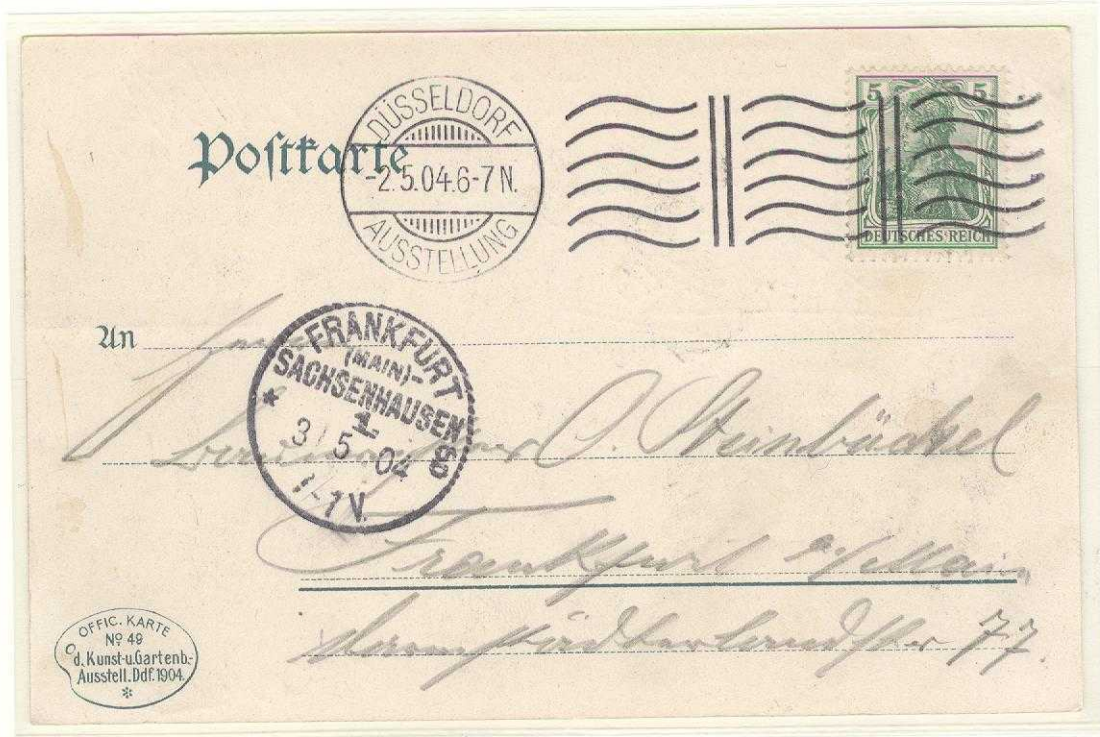 DÜSSELDORF
-2.5.04.6-7 N.
AUSSTELLUNG
5 5
DEUTSCHES REICH
Postkarte
An Herrn
FRANKFURT
(MAIN)-
SACHSENHAUSEN
1.
3/5 04
1-1 V.
C. Steinbückel
Frankfurt a/Main
Darmstädterlandstr 77
OFFIC. KARTE
No 49
d. Kunst-u.Gartenb.-
Ausstell. Ddf. 1904.